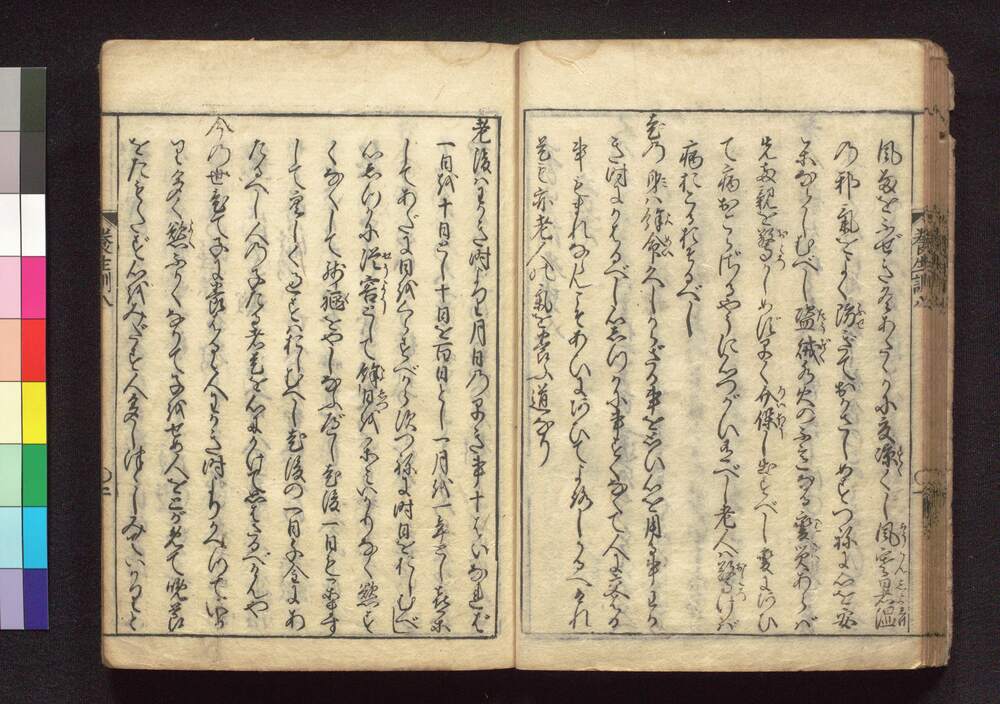 風雨をふせぎ冬あたゝかに夏涼くし風寒暑湿
の邪気をよく防ぎておかさしめずつねに心を安
楽ならしむべし盗賊水火の不意なる変災あらば
先両親を驚かしめず早く介保し出すべし変にあひ
て病おこらざるやうに心づかひ有べし老人は驚けば
病おこるおそるべし
老の身は余命久しからざる事を思ひ心を用る事わか
き時にかはるべし心しづかに事すくなくて人に交はる
事もまれならんこそあひに似あひてよろしかるべけれ
是も亦老人の気を養ふ道なり
養生訓八
老後はわかき時より月日の早き事十ばいなれば
一日を十日とし十日を百日とし一月を一年とし喜楽
してあだに日をくらすべからずつねに時日をおしむべし
心しづかに従容として余日を楽みいかりなく慾すく
なくして残軀をやしなふべし老後一日も楽まず
して空しく過すはおしむべし老後の一日千金にあ
たるべし人の子たる者是を心にかけて思はざるべけんや
今の世老て子に養はるゝ人わかき時よりかへつていか
り多く慾ふかくなりて子をせめ人をとがめて晩節
をたもたず心をみだす人多しつゝしみていかりと
養生訓八